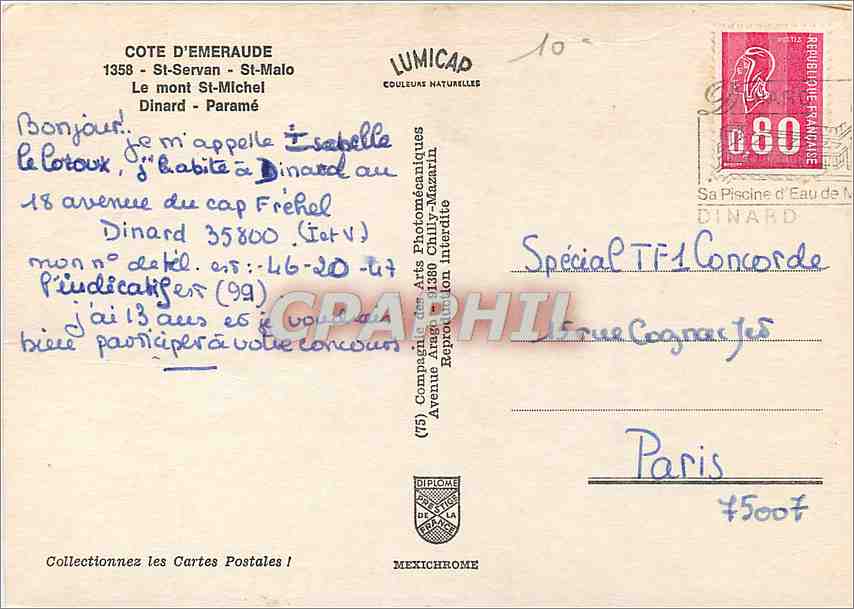 COTE D'EMERAUDE
1358 - St-Servan - St-Malo
Le mont St-Michel
Dinard - Paramé
LUMICAP
COULEURS NATURELLES
10
Bonjour!
je m'appelle Isabelle
le Coroux, j'habite à Dinard au
18 avenue du cap Fréhel
Dinard 35800 (I et V)
mon n° de tel. est :- 46-20-47
l'indicatif est (99)
j'ai 13 ans et je voudrais
bien participer à votre concours
(75) Compagnie des Arts Photomécaniques
Avenue Arago - 91380 Chilly-Mazarin
Reproduction interdite
POSTES
REPUBLIQUE FRANÇAISE
0.80
Sa Piscine d'Eau de M
DINARD
Spécial TF1 Concorde
15 rue Cognac Jet
Paris
75007
CPAPHIL
DIPLOME
PRESTIGE
DE LA
FRANCE
MEXICHROME
Collectionnez les Cartes Postales !